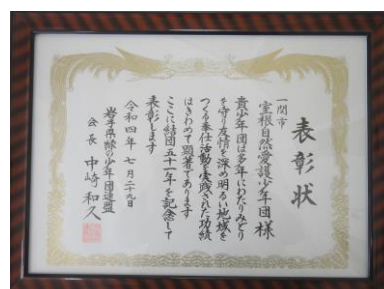 表彰状
一関市
室根自然愛護少年団様
貴少年団は多年にわたりみどり
を守り友情を深め明るい地域を
つくる奉仕活動を実践された功績
はきわめて顕著であります
ここに結団五十一年を記念して
表彰します
令和四年七月二十九日
岩手県緑の少年団連盟
会長 中崎和久